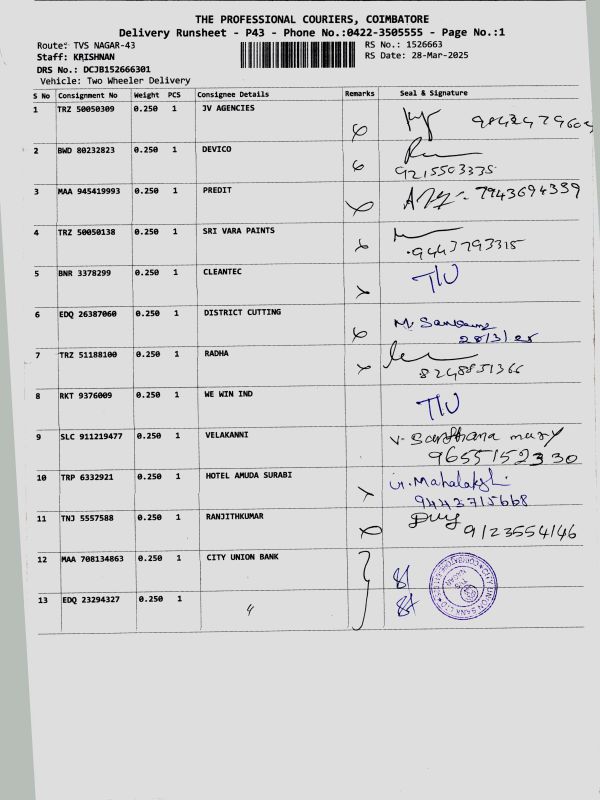 THE PROFESSIONAL COURIERS, COIMBATORE
Delivery Runsheet - P43 - Phone No.:0422-3505555 - Page No.:1
Route: TVS NAGAR-43 RS No.: 1526663
Staff: KRISHNAN RS Date: 28-Mar-2025
DRS No.: DCJB152666301
Vehicle: Two Wheeler Delivery
S No Consignment No Weight PCS Consignee Details Remarks Seal & Signature
1 TRZ 50050309 0.250 1 JV AGENCIES
2 BWD 80232823 0.250 1 DEVICO
9215503335
3 MAA 945419993 0.250 1 PREDIT 7943694339
4 TRZ 50050138 0.250 1 SRI VARA PAINTS
9443793315
5 BNR 3378299 0.250 1 CLEANTEC
6 EDQ 26387060 0.250 1 DISTRICT CUTTING
7 TRZ 51188100 0.250 1 RADHA
8248851366
8 RKT 9376009 0.250 1 WE WIN IND
9 SLC 911219477 0.250 1 VELAKANNI V. Santhana mary
9655152330
10 TRP 6332921 0.250 1 HOTEL AMUDA SURABI
9443715668
11 TNJ 5557588 0.250 1 RANJITHKUMAR
9123554146
12 MAA 708134863 0.250 1 CITY UNION BANK
13 EDQ 23294327 0.250 1 "